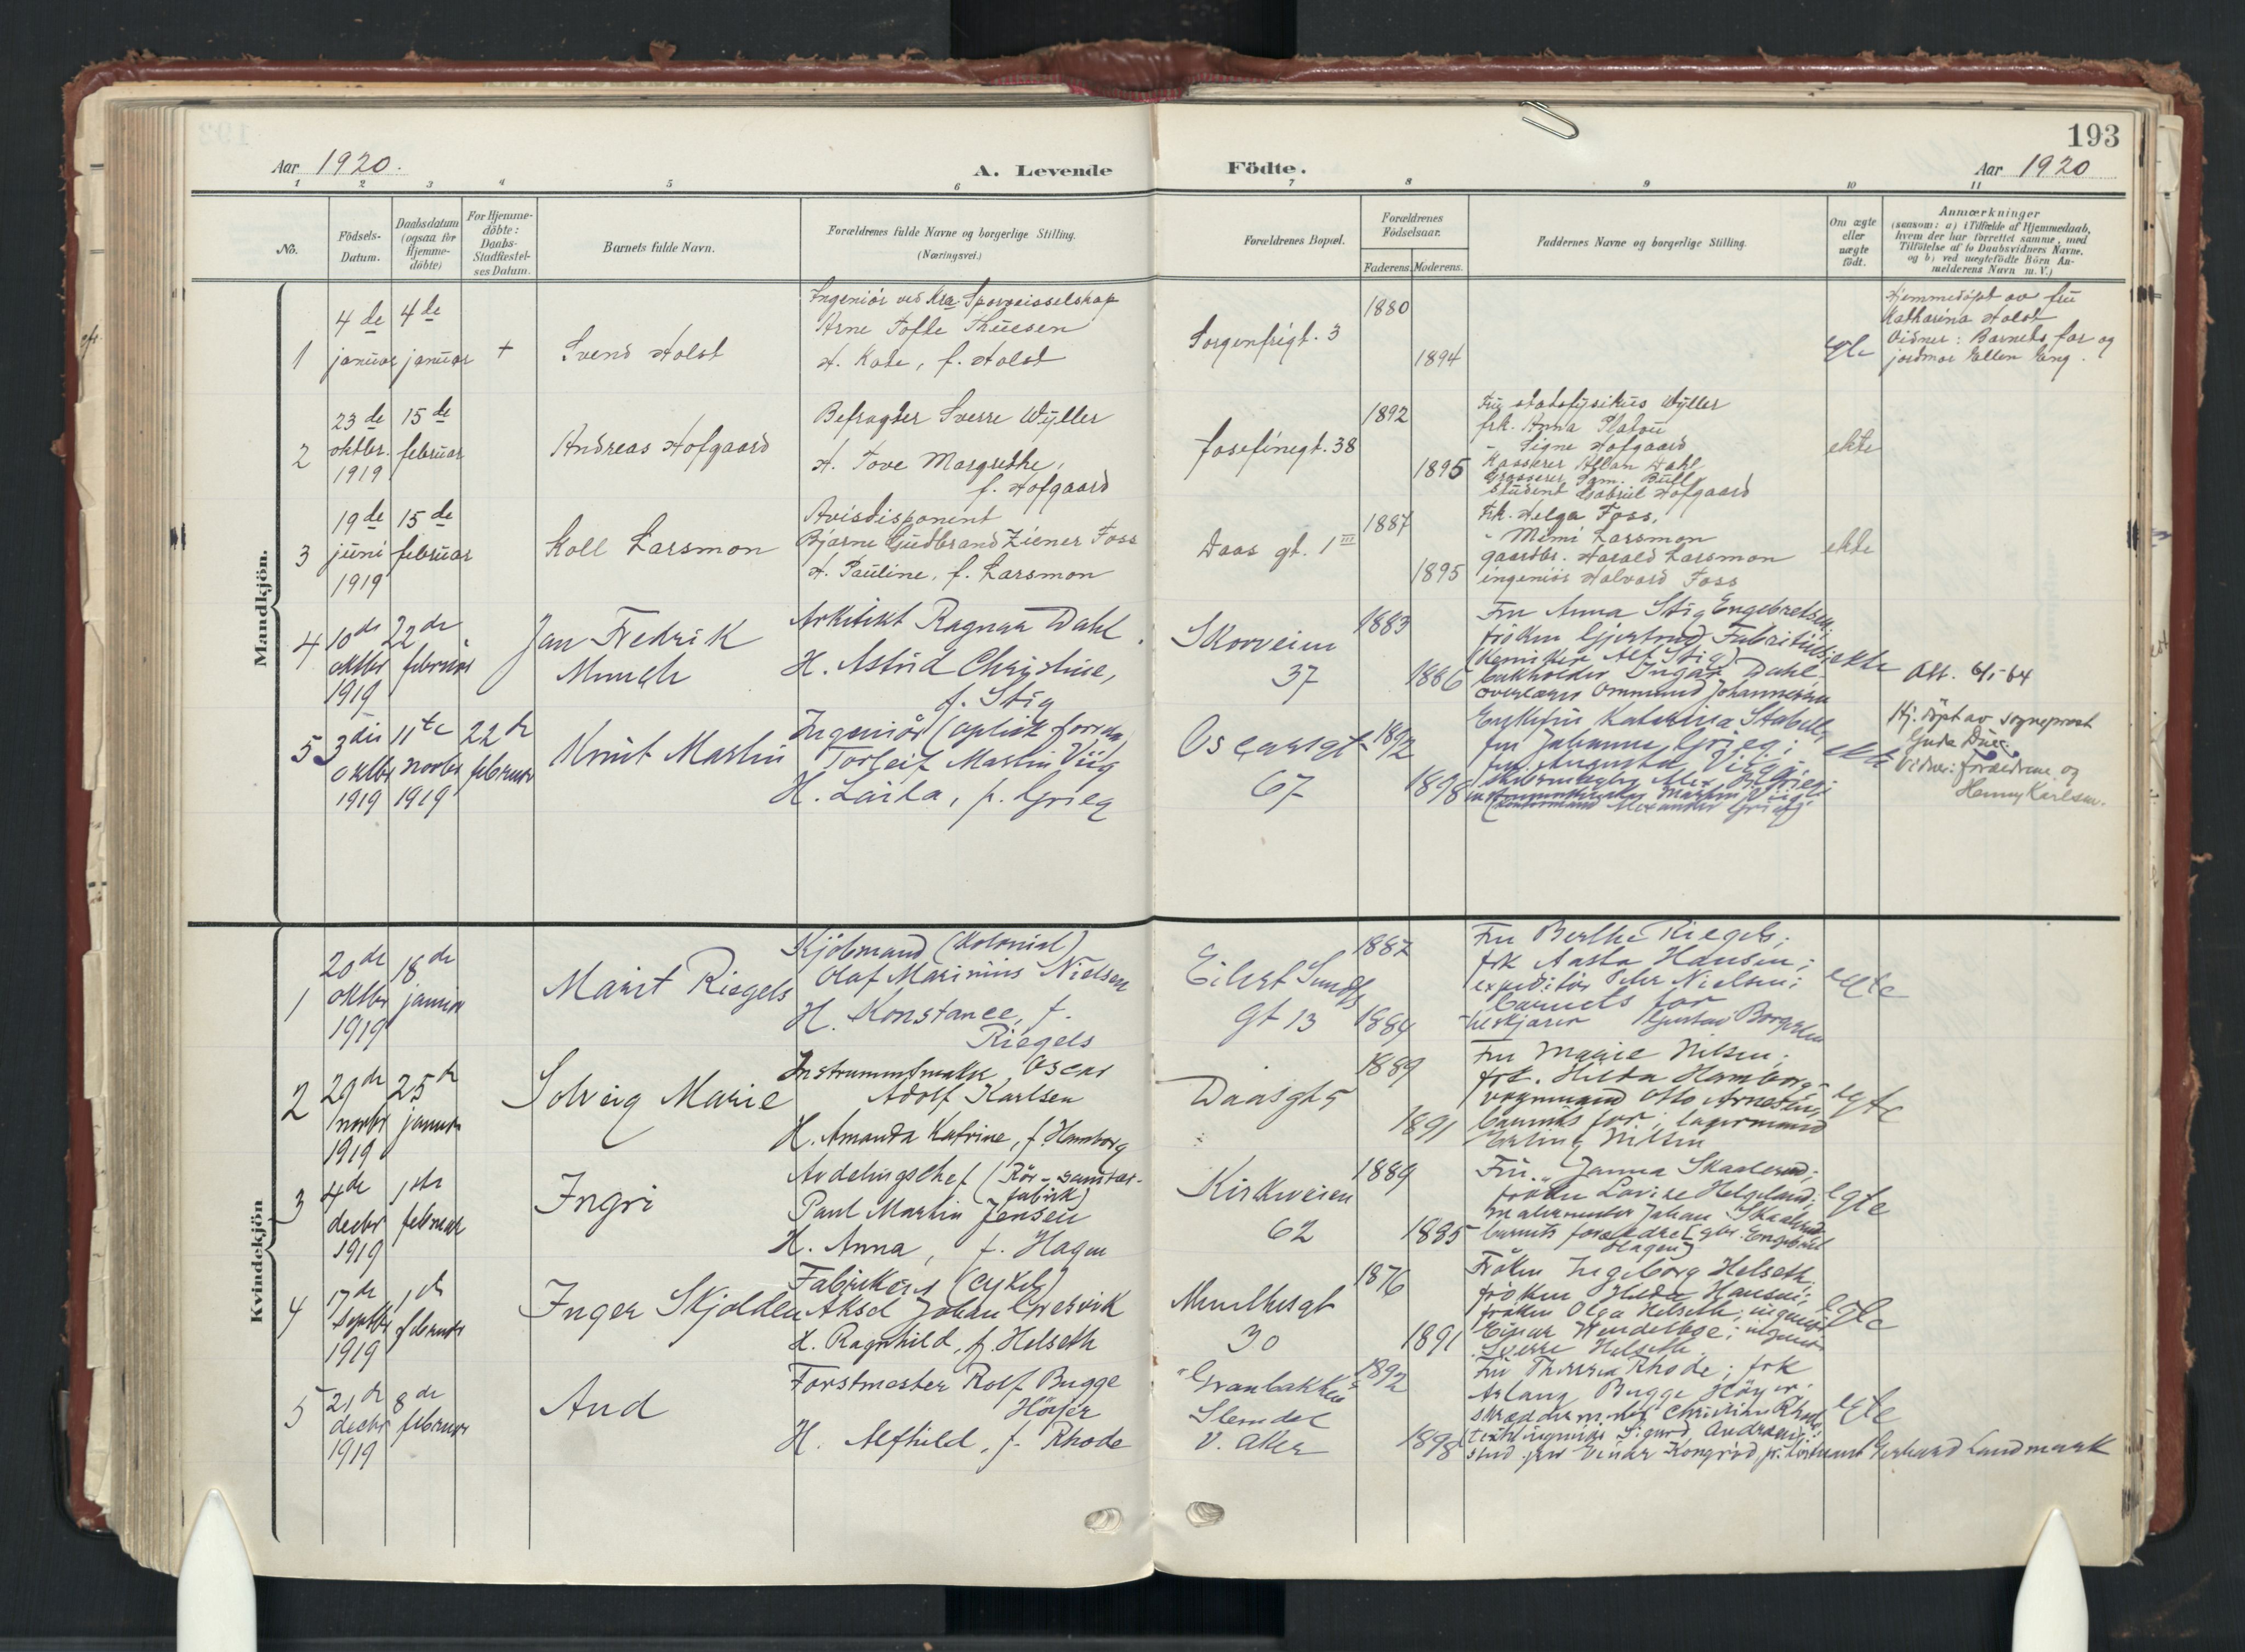 193
Aar 1920.
A. Levende Födte.
Aar 1920
1 2 3 4 5 6 7 8 9 10 11
No.
Födsels-
Datum.
Daabsdatum
(ogsaa for
Hjemme-
döbte)
For Hjemme-
döbte:
Daabs-
Stadfæstel-
ses Datum.
Barnets fulde Navn.
Forældrenes fulde Navne og borgerlige Stilling.
(Næringsvei.)
Forældrenes Bopæl.
Forældrenes
Födselsaar.
Faderens. Moderens.
Faddernes Navne og borgerlige Stilling.
Om ægte
eller
uægte
födt.
Anmærkninger
(saasom: a) i Tilfælde af Hjemmedaab,
hvem der har forrettet samme, med
Tilföielse af to Daabsvidners Navne,
og b) ved uægtefödte Börn An-
melderens Navn m. V.)
Mandkjön.
1
4de
januar
4de
januar
+
Svend Holst
Ingeniör ved Kra. Sporveisselskap
Arne Tofte Thuesen
H. Kate, f. Holst
Sorgenfrigt. 3
1880
1894
Hjemmedöpt av fru
Katharina Holst
Vidner: Barnets far og
jordmor Ellen Eng.
2
23de
oktbr.
1919
15de
februar
Andreas Hofgaard
Befragter Sverre Wyller
H. Tove Margrethe,
f. Hofgaard
Josefinegt. 38
1892
1895
Fru statsfysikus Wyller
frk. Anna Platou
" Signe Hofgaard
Kasserer Allan Dahl
Grosserer Sam. Bull
Student Gabriel Hofgaard
ekte
3
19de
juni
1919
15de
februar
Koll Larsmon
Avisdisponent
Bjarne Gudbrand Ziener Foss
H. Pauline, f. Larsmon
Daas gt. 1 III
1887
1895
Frk. Helga Foss,
" Mimi Larsmon
gaardbr. Harald Larsmon
ingeniör Halvard Foss
ekte
4
10de
oktbr
1919
22de
februar
Jan Fredrik
Munch
Arkitekt Ragnar Dahl
H. Astrid Christine,
f. Stig
Skovveien
37
1883
1886
Fru Anna Stig Engebretsen
fröken Gjertrud Fabritius
(Kemiker Alf Stig)
bokholder Ingar Dahl
overlæge Ommund Johannesen
ekte
Att. 6/1-64
5
3die
oktbr
1919
11te
novbr
1919
22de
februar
Knut Martin
Ingeniör (optisk forretn.)
Torleif Martin Viig
H. Laila, f. Grieg
Oscarsgt
67
1892
1898
Enkefru Katerina Stabell
fru Johanna Grieg;
fru Augusta Viig;
ekte
Hj. döpt av sogneprest
Vidner: Foræeldrene og
Henny Karlsen.
Kvindekjön
1
20de
oktbr
1919
18de
januar
Marit Riegels
Kjöbmand (Kolonial)
Olaf Marinius Nielsen
H. Konstance, f.
Riegels
Eilert Sundts
gt 13
1887
1884
Fru Berthe Riegels;
frk Aasta Hansen;
expeditör Peter Nielsen;
barnets far
Gustav Borgersen
egte
2
29de
novbr
1919
25de
januar
Solveig Marie
Instrumentmaker Oscar
Adolf Karlsen
H. Amanda Katrine, f. Hamborg
Daasgt 5
1889
1891
Fru Marie Nilsen;
frk. Hilda Hamborg
vognmand Otto Arnesen,
barnets far; lagermand
Erling Nilsen
egte
3
4de
decbr
1919
1ste
februar
Ingri
Avdelingschef (Rör-sanitær-
fabrik)
Paul Martin Jensen
H. Anna, f. Hagen
Kirkeveien
62
1889
1895
Fru Janna Skaalerud;
fröken Lovise Helgeland;
malermester Johan Skaalerud
barnets forældre (gbr. Engebret
Hagen)
egte
4
17de
septbr
1919
1ste
februar
Inger Skjolden
Fabrikeier (Cykel)
Aksel Johan Gresvik
H. Ragnhild, f. Helseth
Munthesgt
30
1876
1891
Fröken Ingeborg Helseth
fröken Hilda Hansen;
fröken Olga Helseth; ingeniör
Einar Wendelboe; ingeniör
Sverre Helseth
egte
5
21de
decbr
1919
8de
februar
Aud
Forstmester Rolf Bugge
Höyer
H. Alfhild, f. Rhode
"Granbakken"
Slemdal
V. Aker
1892
1898
Fru Theresa Rhode; frk
Aslaug Bugge Höyer;
skræddermester Christian Rhode
ingeniör Sigurd Andresen;
stud. jur Einar Kongröd, pr. löitnant Gerhard Landmark
egte